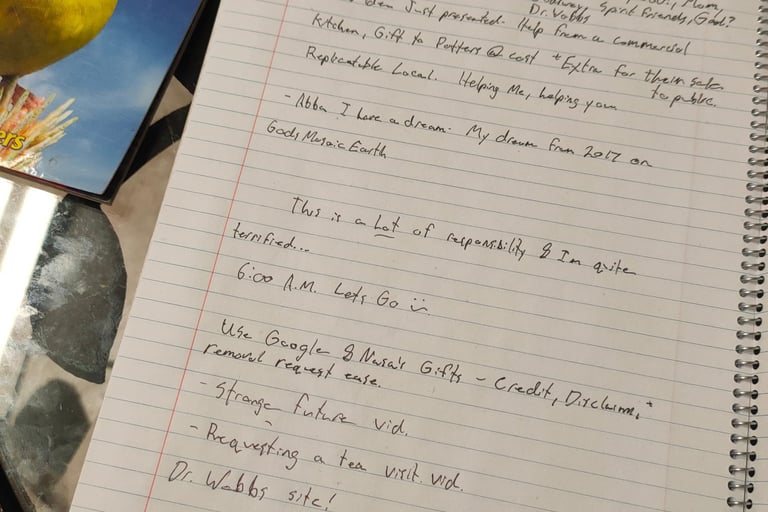 Mom,
Spirit friends, God?
Dr. Wabbs
Just presented. Help from a commercial
Kitchen, Gift to Potters @ cost + Extra for them sale
to public.
Replicatable Local. Helping Me, helping you
- Abba I have a dream. My dream from 2017 on
Gods Mosaic Earth
This is a Lot of responsibility & Im quite
terrified...
6:00 A.M. Lets Go
Use Google & Nasa's Gifts - Credit, Disclaim, +
removal request ease.
- Strange future vid.
- Requesting a tea visit vid.
Dr. Wabbs site!
ers